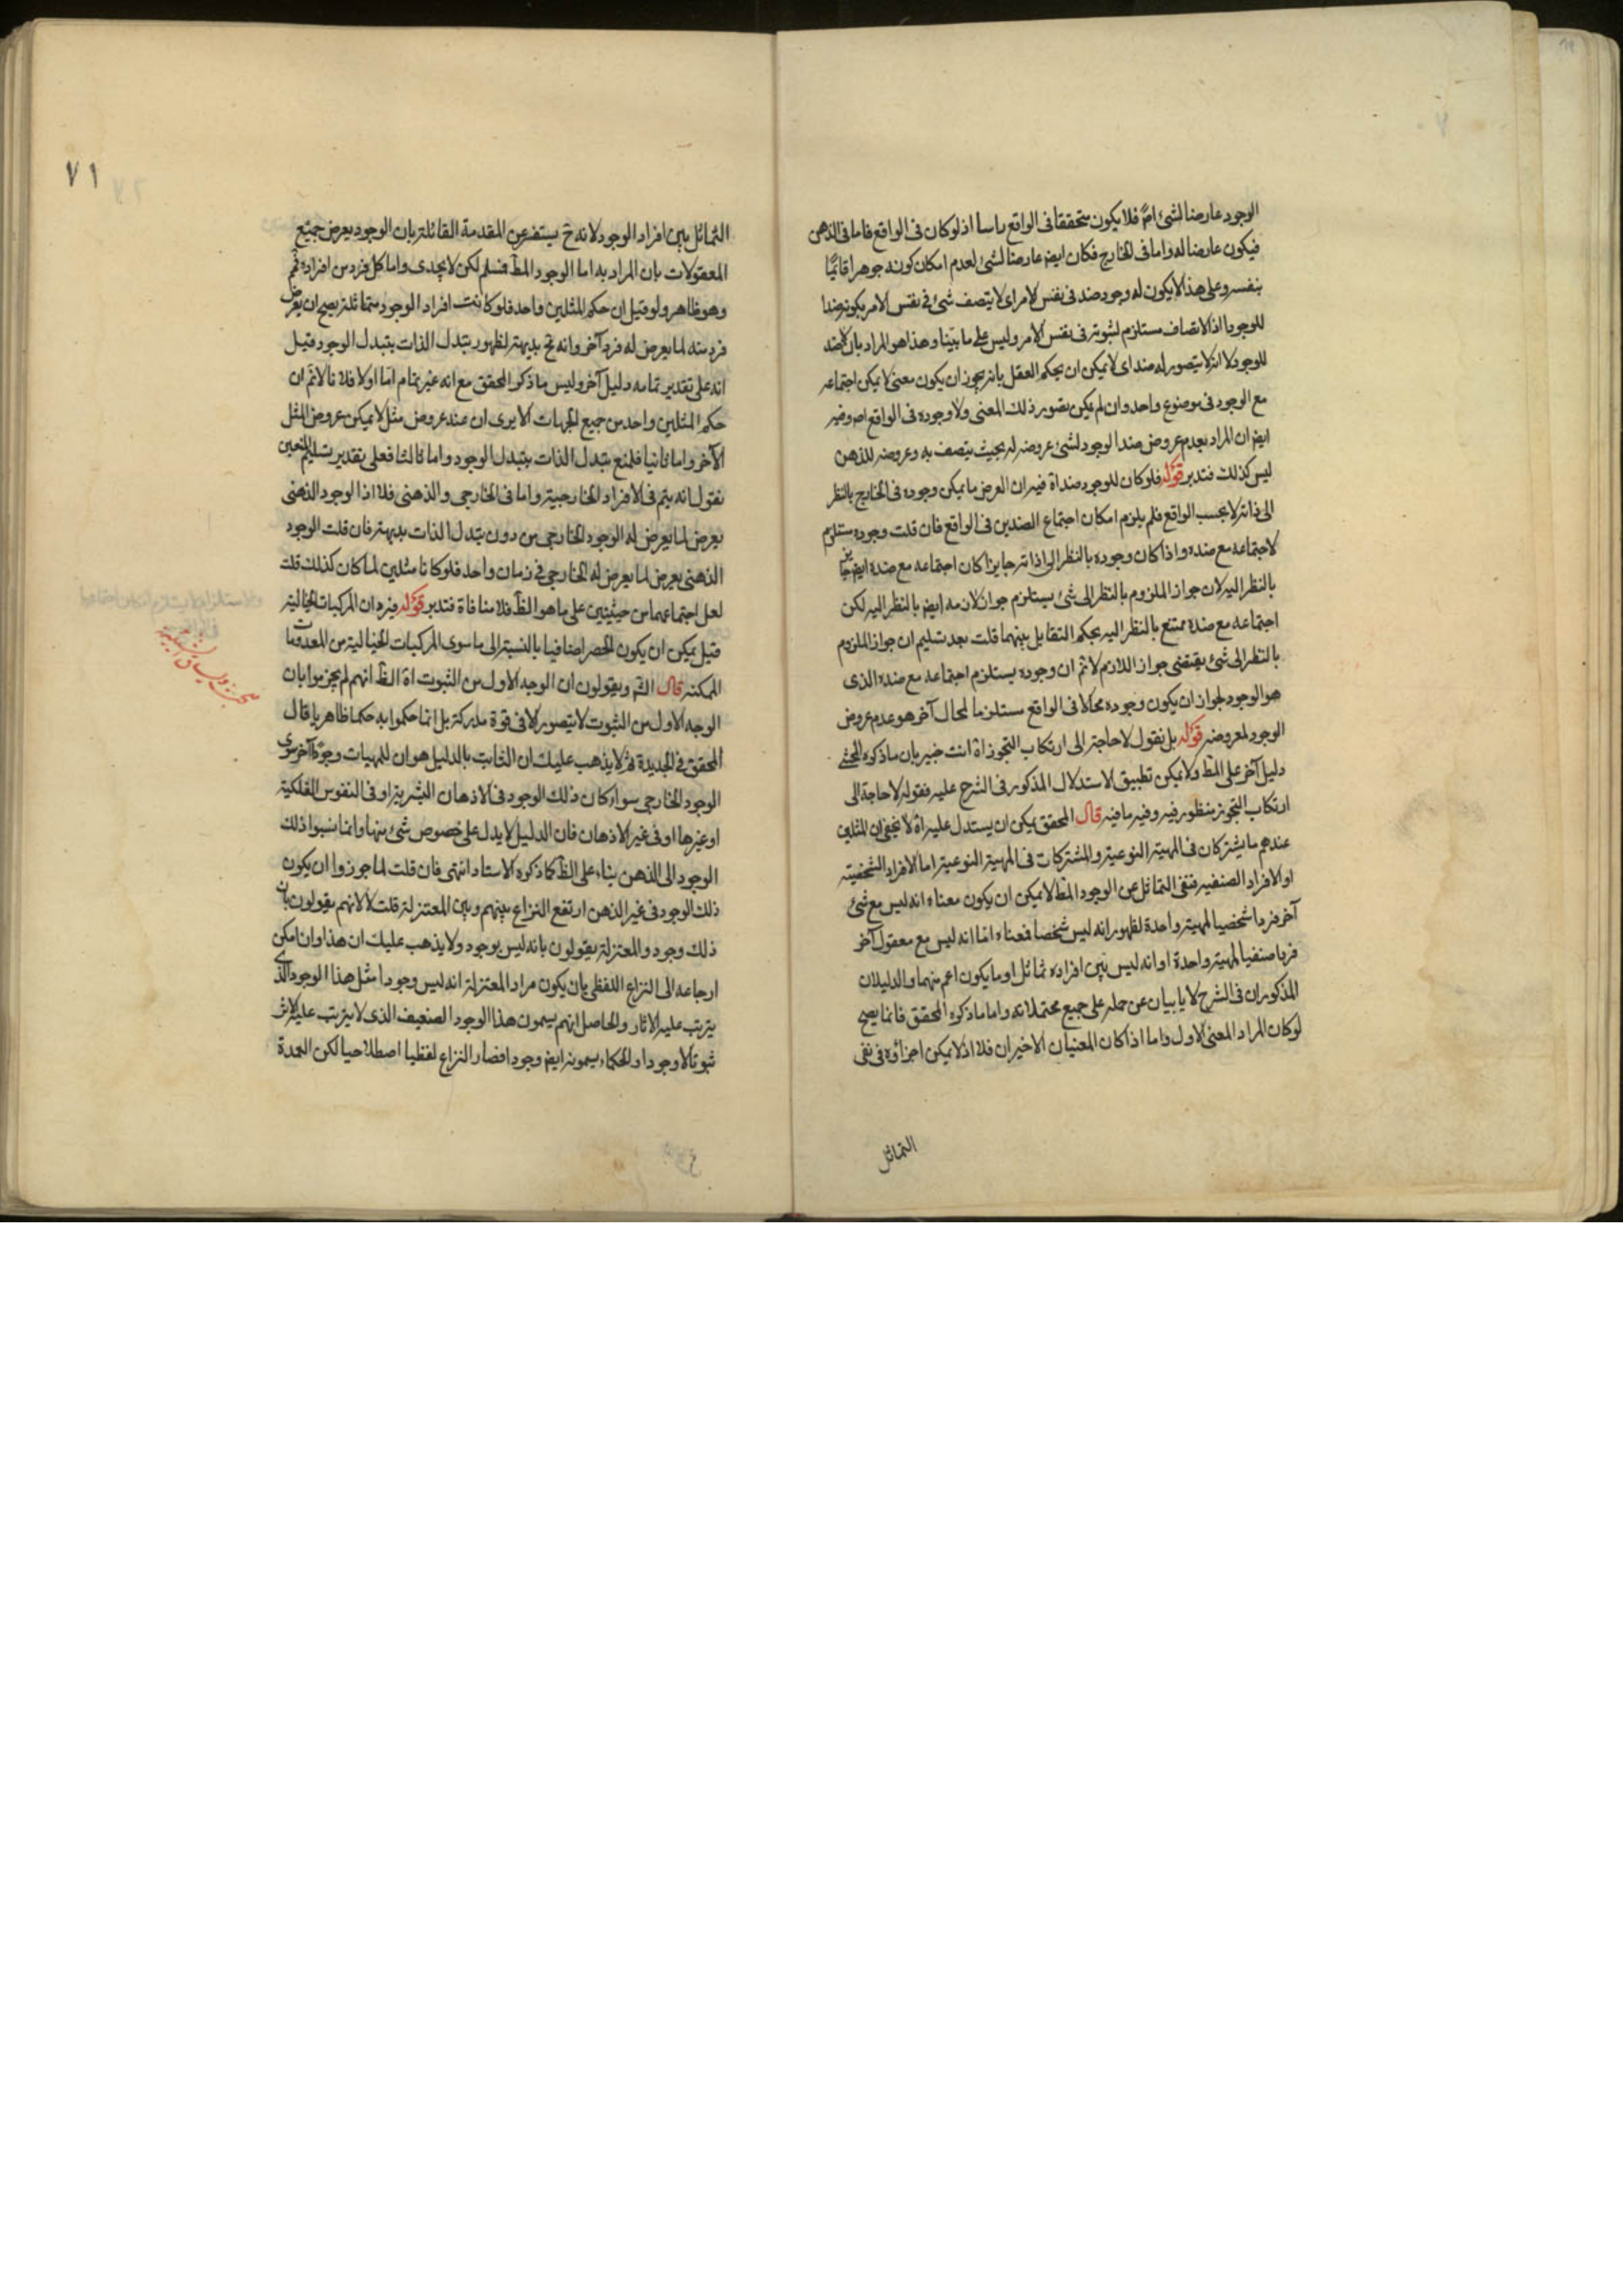 الوجود عارضا لشئ اصلا فلا يكون متحققا فى الواقع راسا اذ لو كان فى الواقع فاما فى الذهن
فيكون عارضا له واما فى الخارج فكان ايضا عارضا لشئ لعدم امكان كونه جوهرا قائما
بنفسه وعلى هذا لا يكون له وجود ضد فى نفس الامر اى لا يتصف شئ فى نفس الامر بكونه ضدا
للوجود اذ الاتصاف مستلزم لثبوته فى نفس الامر وليس على ما بينا وهذا هو المراد بان لا ضد
للوجود لا انه لا يتصور له ضد اى لا يمكن ان يحكم العقل بانه يجوز ان يكون معنى لا يمكن اجتماعه
مع الوجود فى موضوع واحد وان لم يكن بتصور ذلك المعنى ولا وجوده فى الواقع اه وفيه
ايض ان المراد بعدم عروض ضد الوجود لشئ عروضه له بحيث يتصف به وعروضه للذهن
ليس كذلك فتدبر قوله فلو كان للوجود ضد اه فيه ان العرض ما يمكن وجوده فى الخارج بالنظر
الى ذاته لا بحسب الواقع فلم يلزم امكان اجتماع الضدين فى الواقع فان قلت وجوده مستلزم
لاجتماعه مع ضده واذا كان وجوده بالنظر الى ذاته جايزا كان اجتماعه مع ضده ايض جايز
بالنظر اليه لان جواز الملزوم بالنظر الى شئ يستلزم جواز لازمه ايض بالنظر اليه لكن
اجتماعه مع ضده ممتنع بالنظر اليه بحكم التقابل بينهما قلت بعد تسليم ان جواز الملزوم
بالنظر الى شئ يقتضى جواز اللازم لا نم ان وجوده يستلزم اجتماعه مع ضده الذى
هو الوجود لجواز ان يكون وجوده محالا فى الواقع مستلزما لمحال آخر هو عدم عروض
الوجود لمعروضه قوله بل نقول لا حاجة الى ارتكاب التجوز اه انت خبير بان ما ذكره المحشى
دليل آخر على المط ولا يمكن تطبيق الاستدلال المذكور فى الشرح عليه فقوله لا حاجة الى
ارتكاب التجوز منظور فيه وفيه ما فيه قال المحقق يمكن ان يستدل عليه اه لا يخفى ان المثلين
عندهم ما يشتركان فى المهية النوعية والمشتركات فى المهية النوعية اما الافراد الشخصية
او الافراد الصنفية فنفى التماثل عن الوجود المط لا يمكن ان يكون معناه انه ليس مع شئ
آخر فردا شخصيا لمهية واحدة لظهور انه ليس شخصا فمعناه اما انه ليس مع معقول آخر
فردا صنفيا لمهية واحدة او انه ليس بين افراده تماثل او ما يكون اعم منهما والدليلان
المذكوران فى الشرح لا يابيان عن حمله على جميع محتملاته واما ما ذكره المحقق فانما يصح
لو كان المراد المعنى الاول واما اذا كان المعنيان الاخيران فلا اذ لا يمكن اجزاؤه فى نفى
التماثل
٧١
التماثل بين افراد الوجود لانه ح يستفسر عن المقدمة القائلة بان الوجود يعرض جميع
المعقولات بان المراد به اما الوجود المط فمسلم لكن لا يجدى واما كل فرد من افراده فم
وهو ظاهر ولو قيل ان حكم المثلين واحد فلو كانت افراد الوجود متماثلة يصح ان يعرض
فرد منه لما يعرض له فرد آخر وانه نج بديهة لظهور تبدل الذات بتبدل الوجود قيل
انه على تقدير تمامه دليل آخر وليس ما ذكره المحقق مع انه غير تمام اما اولا فلانا لا نم ان
حكم المثلين واحد من جميع الجهات الا يرى ان عند عروض مثل لا يمكن عروض المثل
الآخر واما ثانيا فلمنع تبدل الذات بتبدل الوجود واما ثالثا فعلى تقدير تسليم المنعين
نقول انه يتم فى الافراد الخارجية واما فى الخارجى والذهنى فلا اذ الوجود الذهنى
يعرض لما يعرض له الوجود الخارجى من دون تبدل الذات بديهة فان قلت الوجود
الذهنى يعرض لما يعرض له الخارجى فى زمان واحد فلو كانا مثلين لما كان كذلك قلت
لعل اجتماعهما من حيثيتين على ما هو الظ فلا منافاة فتدبر قوله فيرد ان المركبات الخيالية
قيل يمكن ان يكون الحصر اضافيا بالنسبة الى ما سوى المركبات الخيالية من المعدومات
الممكنة قال الش ويقولون ان الوجه الاول من الثبوت اه الظ انهم لم يجزموا بان
الوجه الاول من الثبوت لا يتصور الا فى قوة مدركة بل انما حكموا به حكما ظاهريا قال
المحقق فى الجديدة ثم لا يذهب عليك ان الثابت بالدليل هو ان للمهيات وجودا آخر سوى
الوجود الخارجى سواء كان ذلك الوجود فى الاذهان البشرية او فى النفوس الفلكية
او غيرها او فى غير الاذهان فان الدليل لا يدل على خصوص شئ منها وانما نسبوا ذلك
الوجود الى الذهن بناء على الظ كما ذكره الاستاد انتهى فان قلت لما جوزوا ان يكون
ذلك الوجود فى غير الذهن ارتفع النزاع بينهم وبين المعتزلة قلت لا لانهم يقولون بان
ذلك وجود والمعتزلة يقولون بانه ليس بوجود ولا يذهب عليك ان هذا وان امكن
ارجاعه الى النزاع اللفظى بان يكون مراد المعتزلة انه ليس وجودا مثل هذا الوجود الذى
يترتب عليه الاثار والحاصل انهم يسمون هذا الوجود الضعيف الذى لا يترتب عليه الاثر
ثبوتا لا وجودا والحكماء يسمونه ايض وجودا فصار النزاع لفظيا اصطلاحيا لكن العمدة